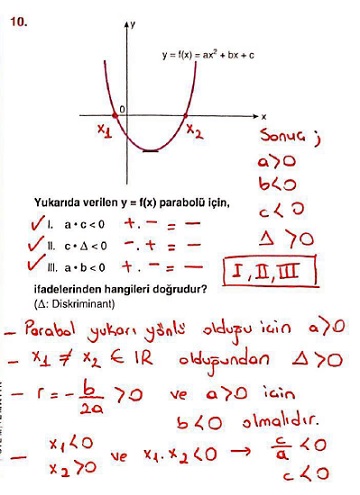 10.
y
y = f(x) = ax² + bx + c
0
x
x₁
x₂
Sonuç ;
a>0
b<0
c<0
Δ >0
Yukarıda verilen y = f(x) parabolü için,
✓ I. a • c < 0 + . - = -
✓ II. c • Δ < 0 - . + = -
✓ III. a • b < 0 + . - = -
I, II, III
ifadelerinden hangileri doğrudur?
(Δ: Diskriminant)
- Parabol yukarı yönlü olduğu için a>0
- x₁ ≠ x₂ ∈ IR olduğundan Δ>0
- r = - b/2a >0 ve a>0 için
b<0 olmalıdır.
- x₁<0 x₂>0 ve x₁.x₂<0 → c/a <0
c<0